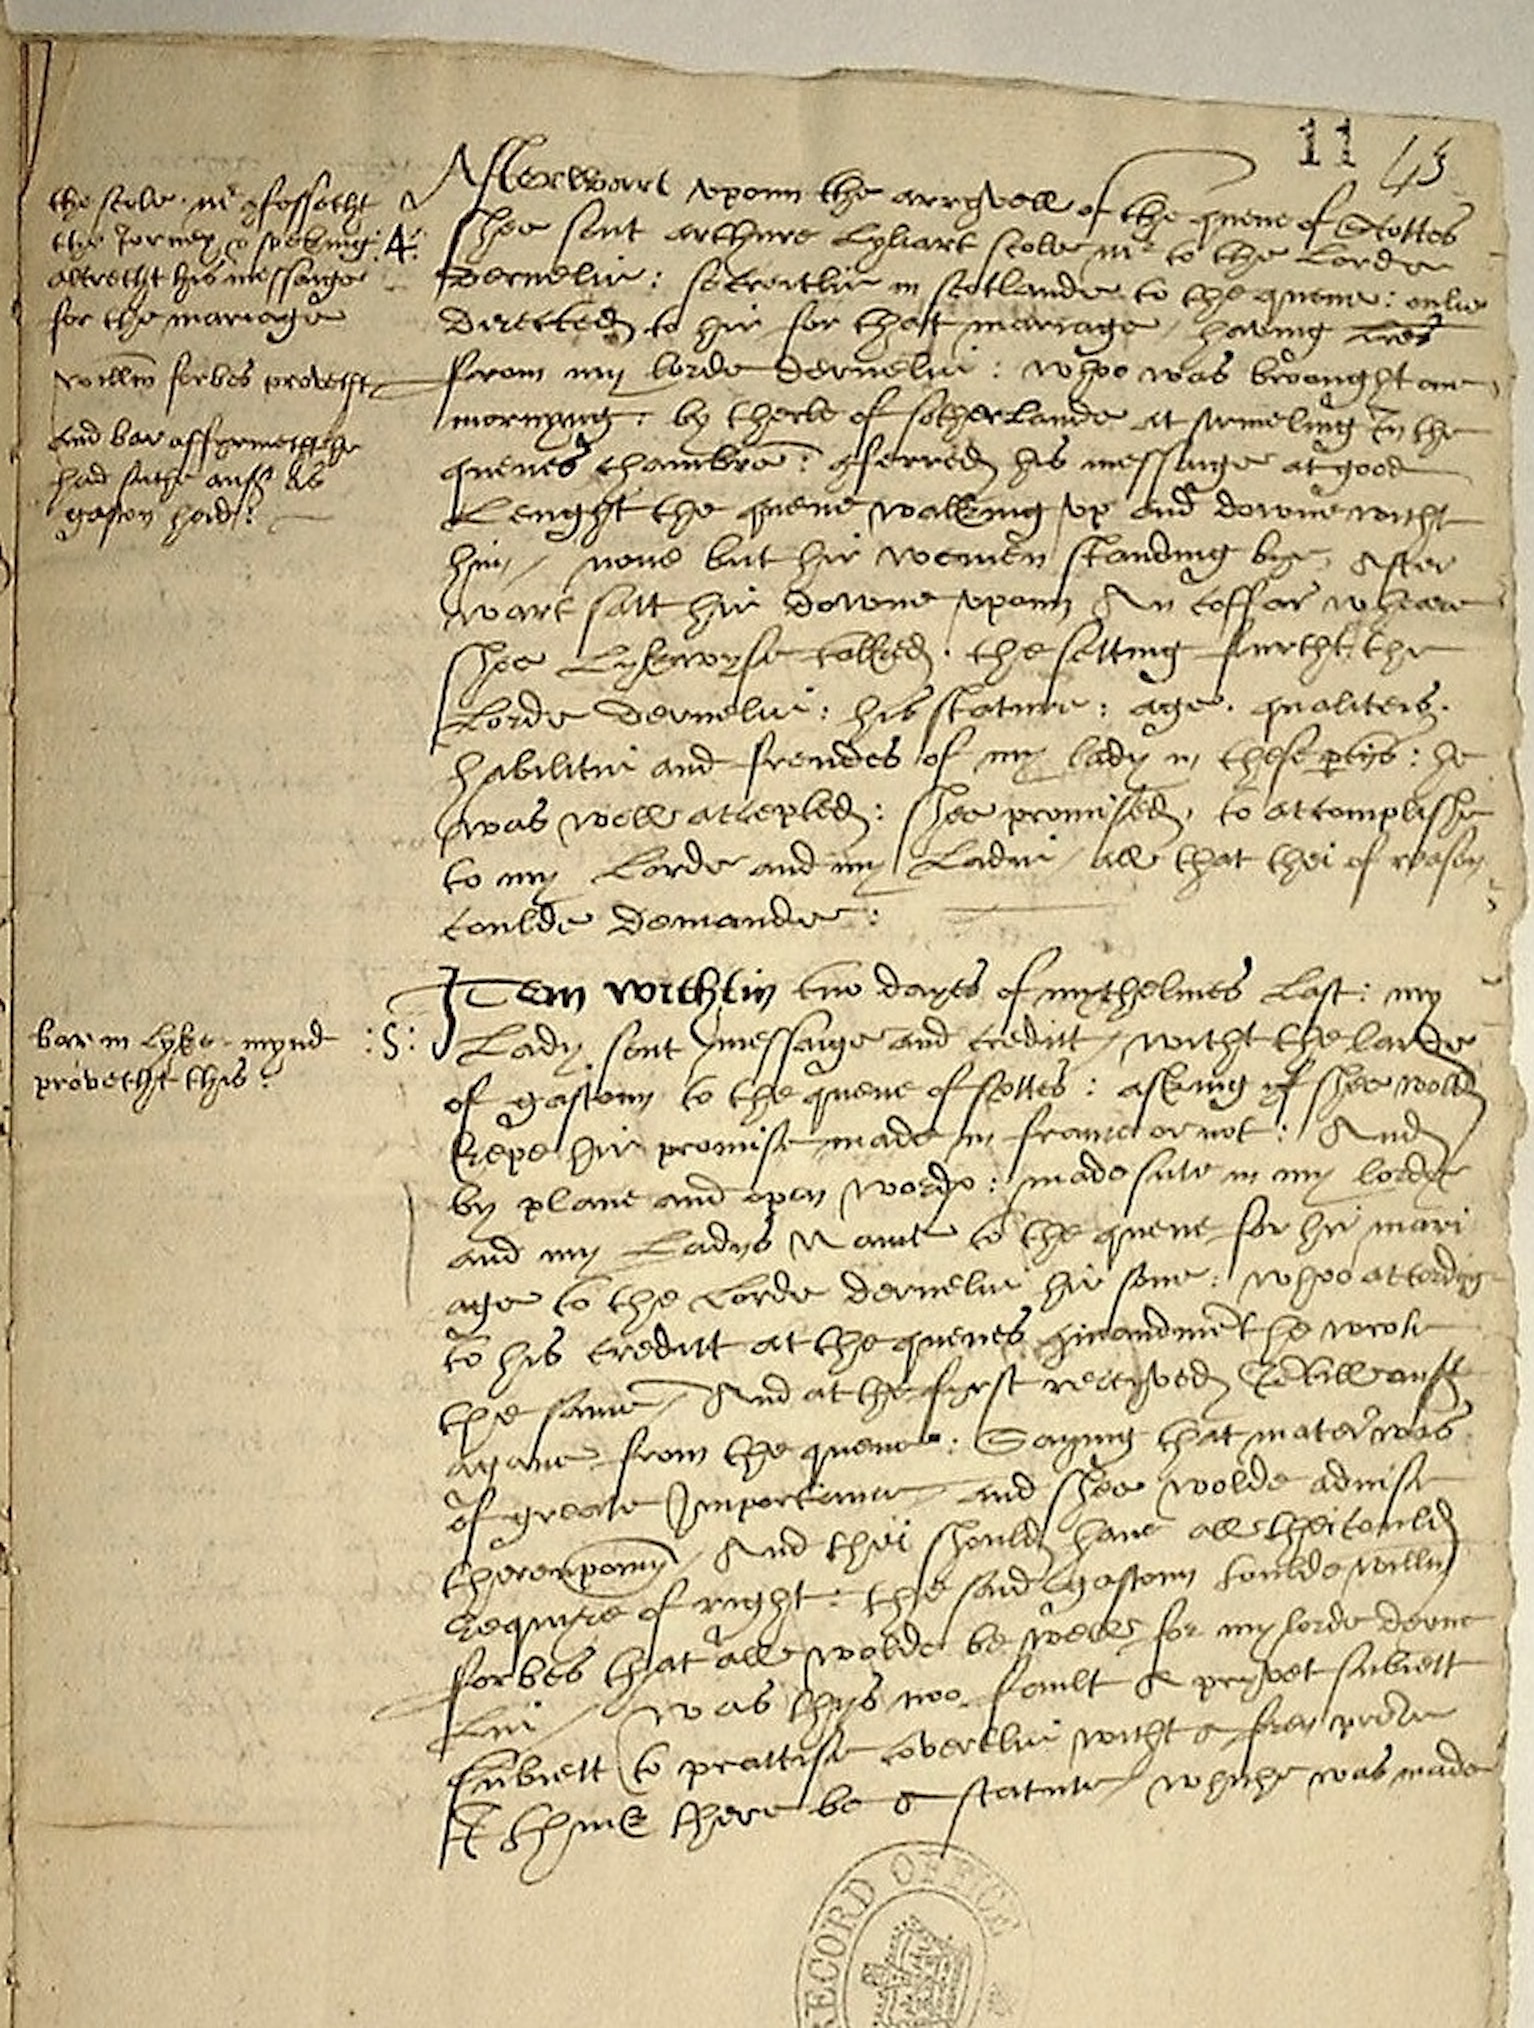 11
45
the scole mr cfessetht
the Jorney & speking
altretht his messaige
for the mariage
willm forbes provetht
and bar affyrmetht he
had suche answ as
gaston had:
:4:
Afterwart vponn the arryvell of the quene of Scottes
shee sent arthure Lyliart scole mr to the Lorde
Dernelie: secreitlie in scotlande to the quene: onlie
directed to hir for that mariage, having lres
from my lorde dernelie: whoo was brought one
mornyng: by therle of sotherlande at sterueling In the
quenes chambre: offerred his messaige at good
Lenght the quene walking vp and downe witht
him, none but hir women standing bye, After
wart satt hir downe vponn An coffer wheare
shee Lykewyse talked. the setting furtht the
Lorde dernelie: his stature: age. qualiteis.
habilitie and frendes of my lady in these ptijs: he
was well accepted: shee promised, to accomplishe
to my Lorde and my Ladie, all that thei of reason
coulde demande:
bar in lyke mynd
provetht this:
:5:
ITem within two dayes of mychelmes Last: my
Lady sent messaige and creditt, witht the larde
of gastonn to the quene of scottes: asking yf shee wold
kepe hir promise made in france or not: And
by plane and open wordes: made sute in my lordes
and my Ladys Name to the quene for hir mari
age to the Lorde dernelie hir sone: whoo according
to his creditt at the quenes comandment he wrote
the same, And at the fyrst receyved
agane from the quene: Saying that mater was
of greate Importance, and shee wolde advise
therevponn, And thei should have all thei could
Requyre of right: the said gastonn toulde willm
forbes that all wolde be well for my lorde derne
lie, was thys noo fault A pryvet subiett
subiett to practise covertlie witht a foren prince
I think there be a statute, whiche was made
RECORD OFFICE